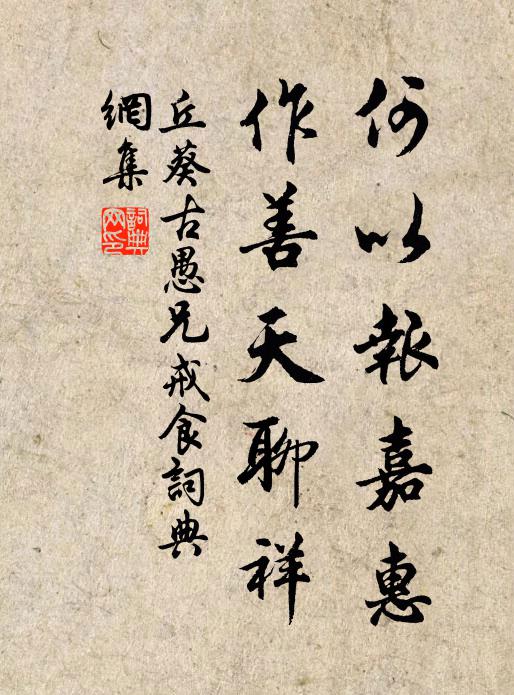 何以報嘉惠
作善天聊祥
丘葵古愚兄戒食詞典
網集
詞典網印